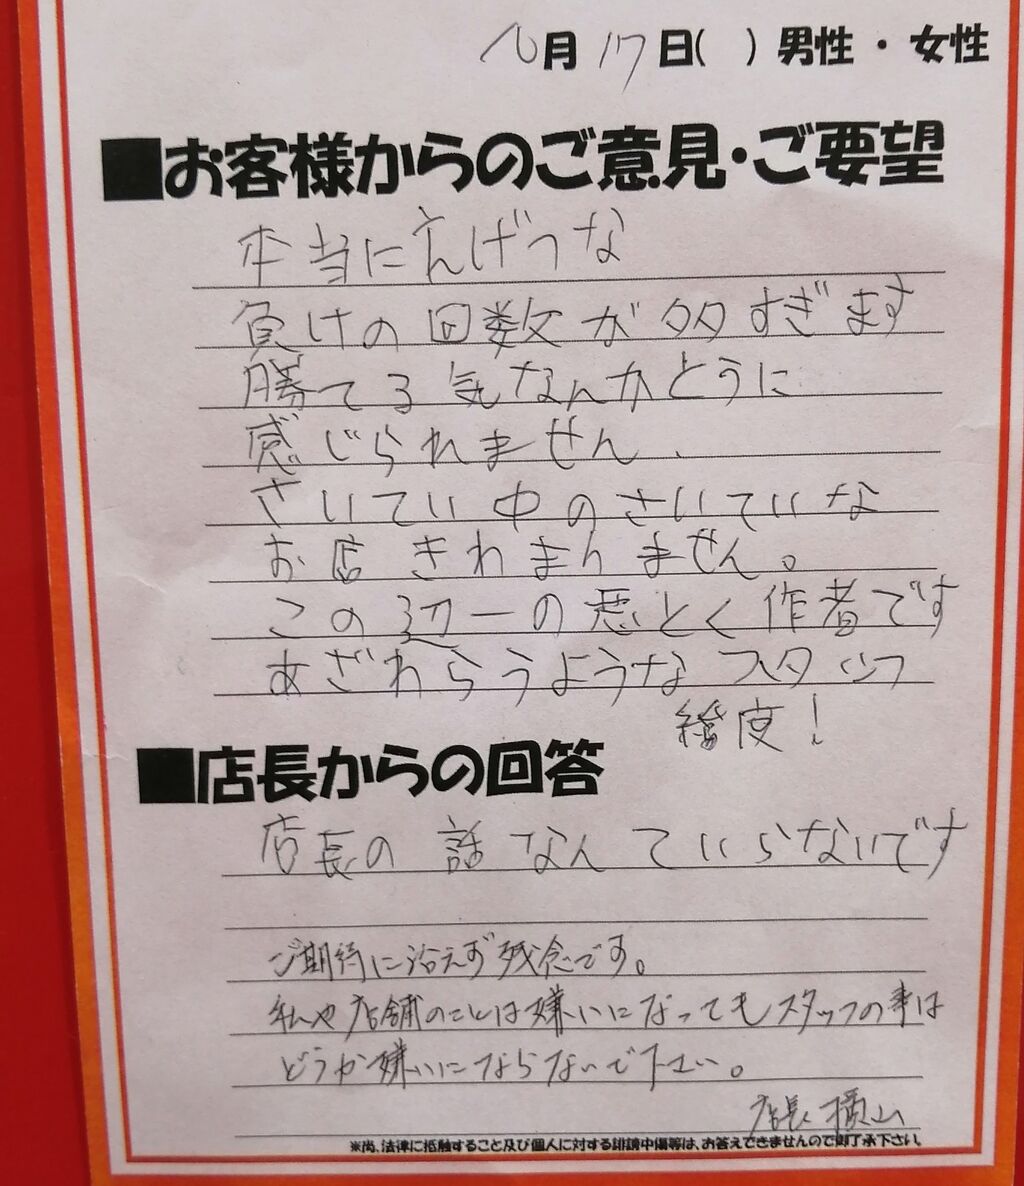 月17日( ) 男性・女性
■お客様からのご意見・ご要望
本当にえげつな
負けの回数が多すぎます
勝てる気なんかとうに
感じられません、
さいてい中のさいていな
お店きわまりません。
この辺一の悪とく作者です
あざわらうようなスタッフ
態度!
■店長からの回答
店長の話なんていらないです
ご期待に沿えず残念です。
私や店舗のことは嫌いになってもスタッフの事は
どうか嫌いにならないで下さい。
店長 横山
※尚、法律に抵触すること及び個人に対する誹謗中傷等は、お答えできませんので御了承下さい。